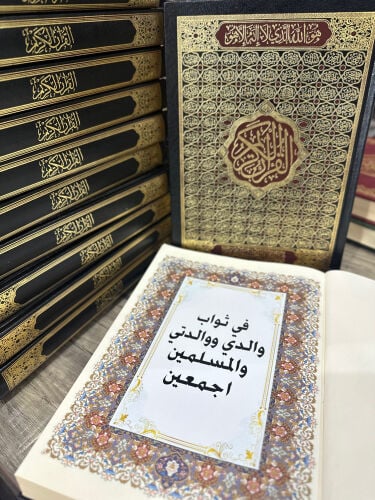 هو الله الذي لا إله إلا هو
القرآن الكريم
القرآن الكريم
القرآن الكريم
القرآن الكريم
القرآن الكريم
القرآن الكريم
القرآن الكريم
القرآن الكريم
القرآن الكريم
في ثواب
والدي ووالدتي
والمتسلمين
اجمعين